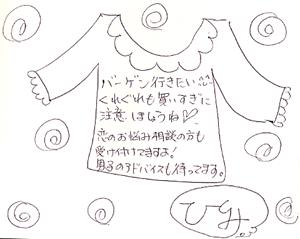 バーゲン行きたい
くれぐれも買いすぎに
注意しましょうね♡
恋のお悩み相談の方も
受け付けてますよ!
男子のアドバイスも待ってます。
ひみ